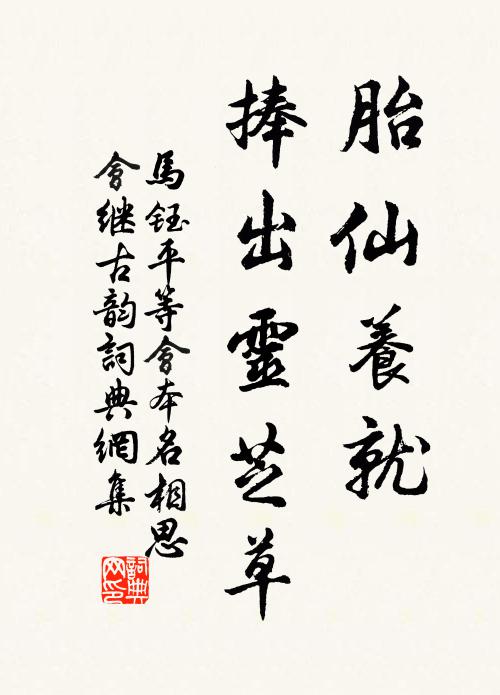 胎仙養就
捧出靈芝草
馬鈺平等會本名相思
會继古韵詞典網集
詞典
网印